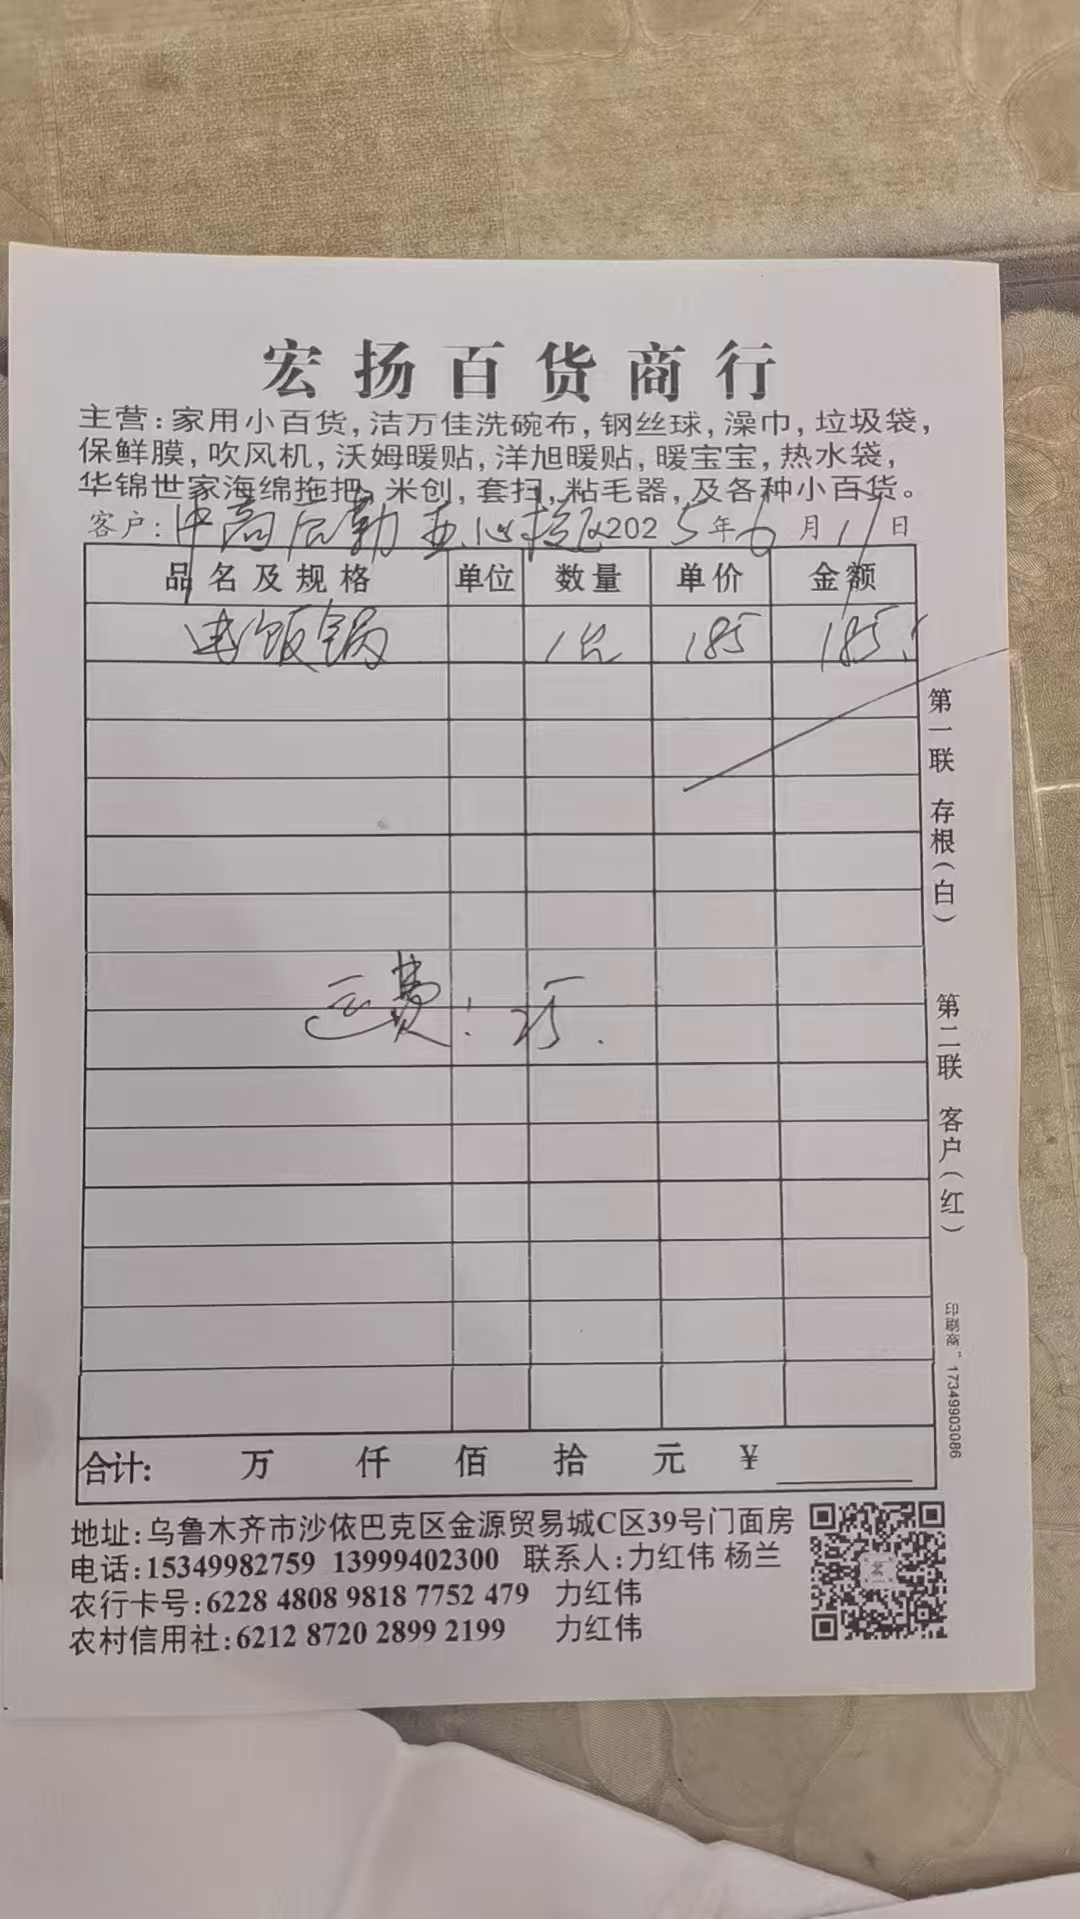 宏扬百货商行
主营:家用小百货,洁万佳洗碗布,钢丝球,澡巾,垃圾袋,
保鲜膜,吹风机,沃姆暖贴,洋旭暖贴,暖宝宝,热水袋,
华锦世家海绵拖把,米创,套扫,粘毛器,及各种小百货。
客户:中商后勤 2025年6月11日
品名及规格 单位 数量 单价 金额
电饭锅 1台 185 185.
运费: 25.
合计: 万 仟 佰 拾 元 ¥
地址:乌鲁木齐市沙依巴克区金源贸易城C区39号门面房
电话:15349982759 13999402300 联系人:力红伟 杨兰
农行卡号:6228 4808 9818 7752 479 力红伟
农村信用社:6212 8720 2899 2199 力红伟
第一联 存根(白)
第二联 客户(红)
印刷商:17349903086